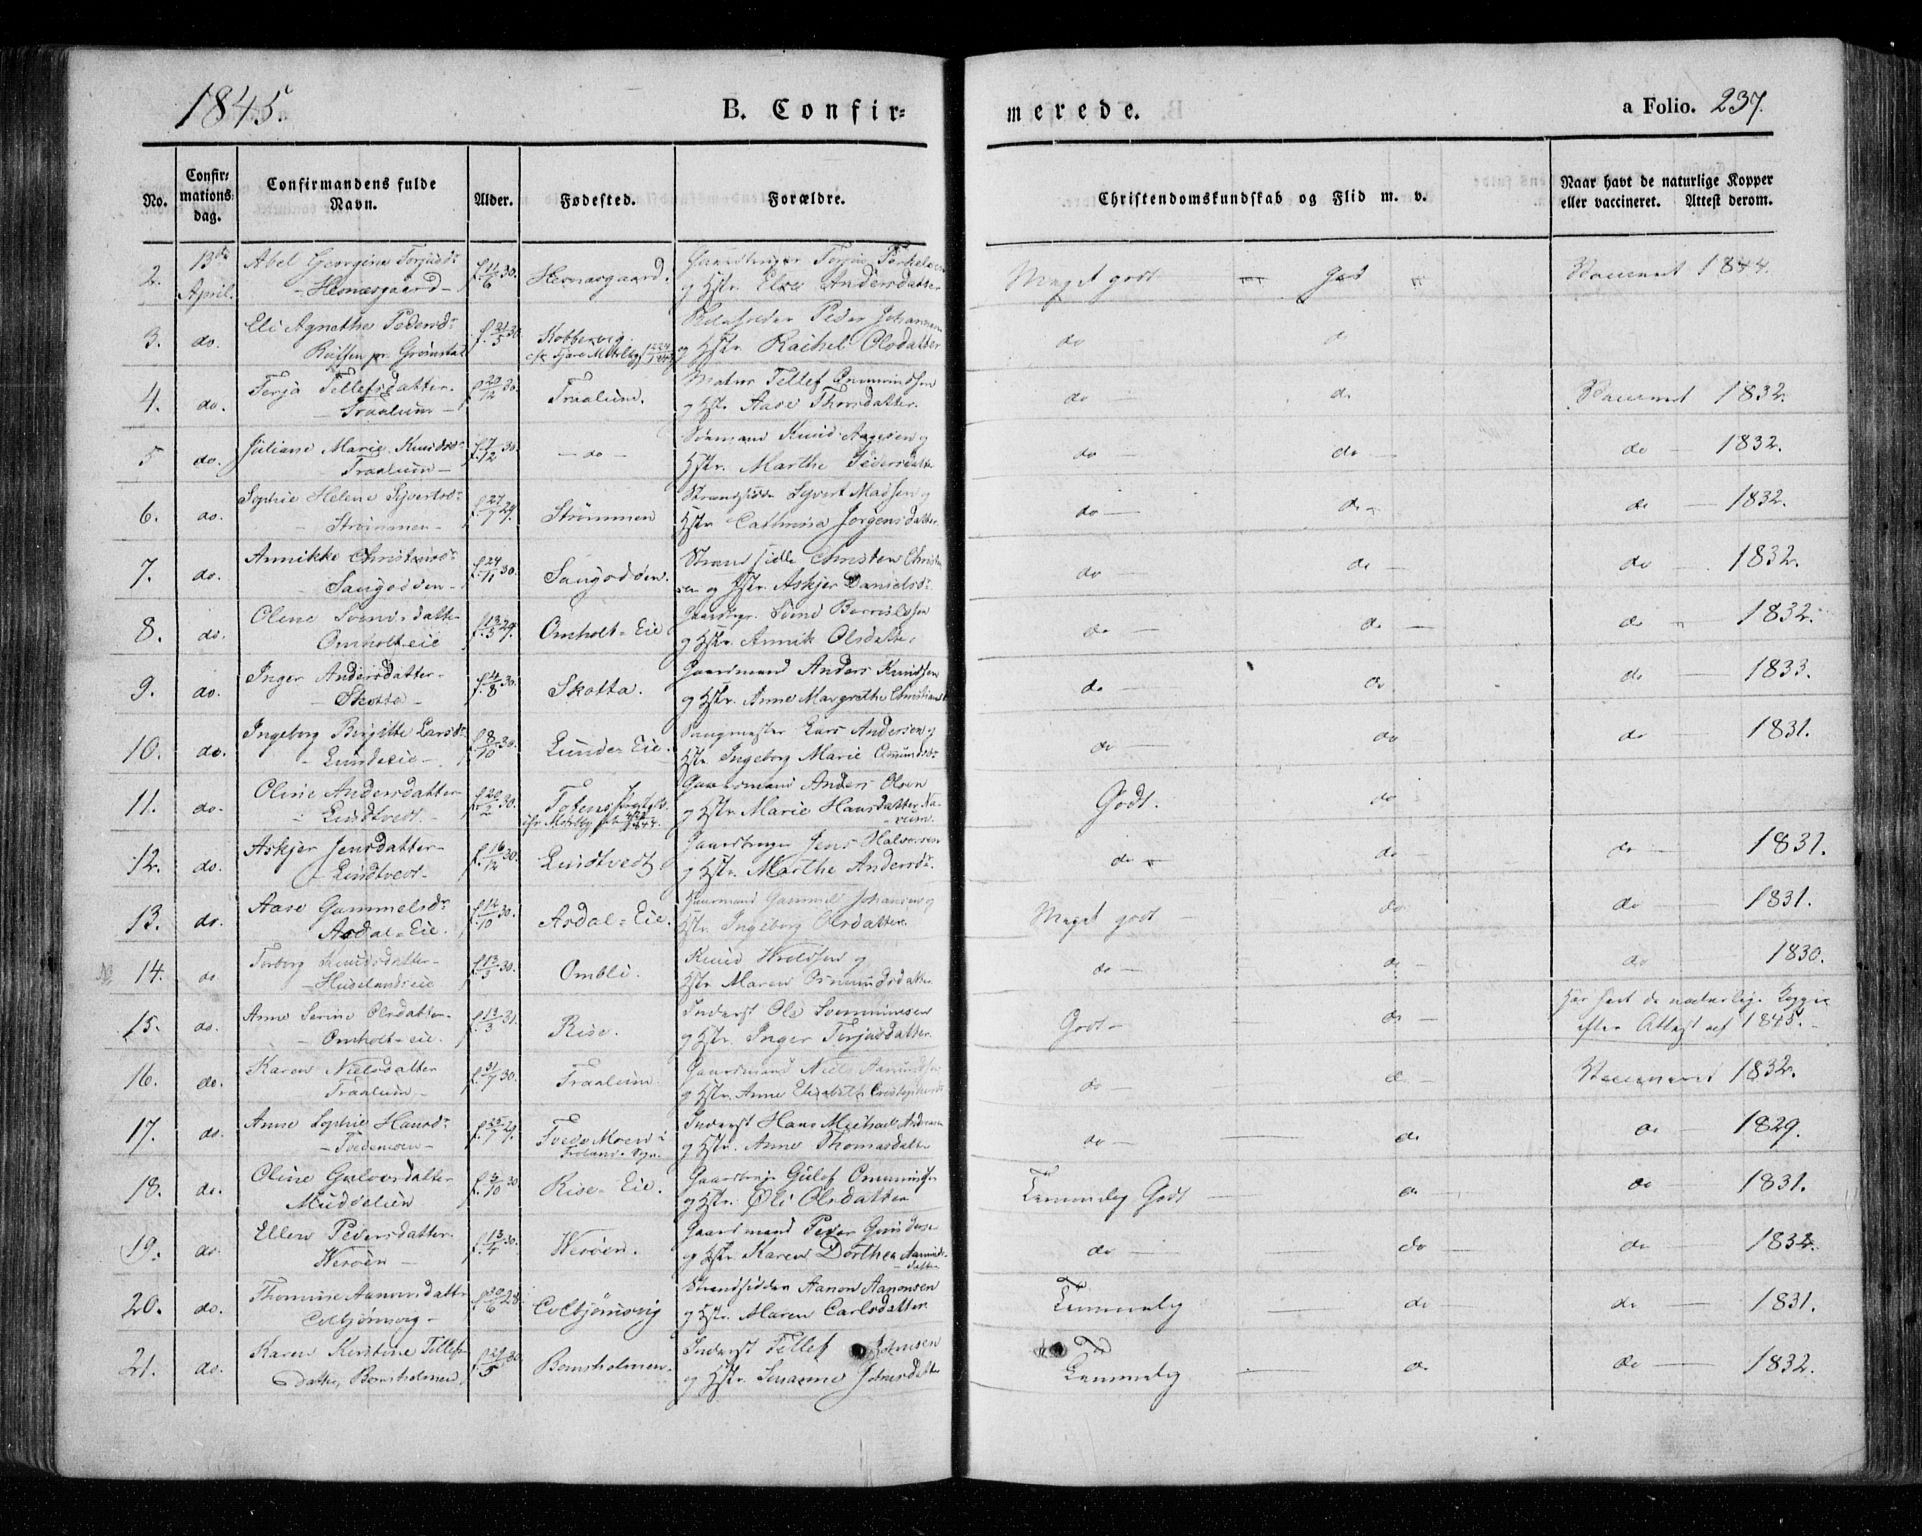 1845.
B. Confir=
merede.
a Folio. 237.
No.
Confir=
mations
dag.
Confirmandens fulde
Navn.
Alder.
Fødested.
Forældre.
Christendomskundskab og Flid m. v.
Naar havt de naturlige Kopper
eller vaccineret. Attest derom.
2. 13de April. Abel Georgine Torjusdr
- Hesnæsgaard -
f. 11/6 30. Hesnæsgaard. Gaardbruger Torjus Terkelsen
og Hstr. Else Andersdatter
Meget godt God 1844.
3. do. Eli Agnethe Pedersdr
pr. Grømstad
f. 21/5 30 Kobbervig Peder Johannsen
og Hstr. Rachel Olsdatter
do do
4. do. Terja Tellefsdatter
- Traalum -
f. 20/12 30. Traalum. Tellef Ommundsen
og Hstr. Aase Thorsdatter.
do do 1832.
5 do. Juliane Marie Knudsdr
Traalum -
f. 7/12 30. - do - Sømand Knud Aagesen og
Hstr. Marthe Pedersdatter
do - do - do - 1832.
6. do. Sophie Helene Syvertsdr
- Strømmen -
f. 27/7 29. Strømmen Strandsidder Syvert Madsen og
Hstr. Cathrine Jørgensdatter
do - do - do - 1832.
7. do. Annikke Christensdr
- Sangodden -
f. 24/11 30. Sangodden. Strandsidder Christen Christen
sen og Hstr. Askjer Danielsdr
do - do - do - 1832.
8. do. Oline Svendsdatter
Omholt eie
f. 13/5 29. Omholt=Eie Svend
og Hstr. Annik Olsdatter
do - do - do 1832.
9. do. Inger Andersdatter
- Skotta -
f. 4/8 30. Skotta. Gaardmand Anders Knudsen
og Hstr. Anne Margrethe Christiansd
do - do do - 1833.
10. do. Ingeborg Birgitte Larsdr
- Lundeeie -
f. 8/10 30. Lunde=Eie. Lars Andersen og
Hstr. Ingeborg Marie Omundsdr
do - do do - 1831.
11. do. Oline Andersdatter
- Lindtvedt.
f. 20/2 30. Gaardmand Anders Olsen
og Hstr. Marie Hansdatter
Godt. do
12. do. Askjer Jensdatter
- Lindtvedt -
f. 16/12 30. Lindtvedt Gaardbruger Jens Halvorsen
og Hstr. Marthe Andersdr.
do - do - do - 1831.
13. do. Aase Gammelsdr
Asdal=Eie.
f. 12/10 30. Asdal=Eie. Huusmand Gammel Johansen og
Hstr. Ingeborg Olsdatter
Meget godt - do do - 1831.
14. do. Torborg Knudsdatter
f. 13/3 30. Ombli. Knud og
Hstr. Maren Osmundsdatter
do - do - do 1830.
15. do. Anne Serine Olsdatter
- Omholt=eie.
f. 13/3 31. Rise. Inderst Ole
og Hstr. Inger Terjusdatter
Godt - do - Har havt de naturlige Kopper
efter Attest af 1845.
16. do. Karen Nielsdatter
Traalum -
f. 31/7 30. Traalum. Gaardmand Niels Aamundsen
og Hstr. Anne Elisabeth
do - do - 1832.
17. do. Anne Sophie Hansdr
- Tvedemoen -
f. 25/7 29. Inderst Hans Michael Andersen
og Hstr. Anne Thomasdatter
do - do do - 1829.
18. do. Oline Gulovsdatter
Muddelien
f. 3/10 30 Rise=Eie. Gulof Ommundsen
og Hstr. Øli Olsdatter
Temmelig Godt do do - 1831.
19. do. Ellen Pedersdatter
Werøen -
f. 13/4 30. Werøen. Gaardmand Peder Gundersen
og Hstr. Karen Dorthea Aamunds
datter
do - do - do - 1832.
20. do. Thomine Aanonsdatter
Colbjørnsvig -
f. 30/6 28. Colbjørnsvig Strandsidder Aanon Aanonsen
og Hstr. Maren Carlsdatter
Temmelig do - do - 1831.
21. do. Karen Kirstine Tellefs
datter, Bomsholmen.
f. 21/5 30 Bomsholmen. Inderst Tellef
og Hstr. Susanne Johnsdatter
Temmelig do - do - 1832.